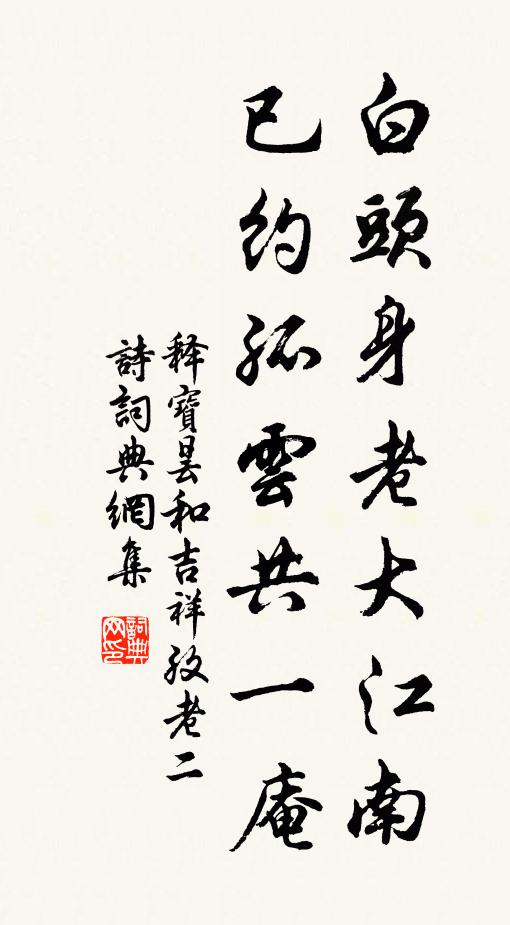 白頭身老大江南
已約孤雲共一庵
釋寶曇和吉祥孜老二
詩詞典網集
詞典網印